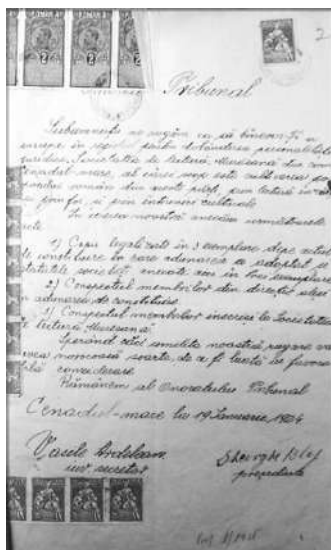 ROMANIA
2 2 2
2
Tribunal
Subsemnații ne rugăm ca să binevoiți a
înscrie în registrul pentru dobândirea personalității
juridice, Societatea de lectură "Mureșana" din com.
Cenadul-mare, al cărei scop este cultivarea
română din aceste părți, prin lectură
și prin întruniri culturale
În cererea noastră anexăm următoarele
acte
1) Copie legalizată în 3 exemplare depe actul
de constituire în care adunarea a adoptat și
statutele societății, anexate în trei exemplare
2) Conspectul membrilor din direcție aleși
în adunarea de constituire
3) Conspectul membrilor înscriși la Societatea
de lectură "Mureșana"
Sperând că umilita noastră rugare va
avea norocoasă soarta, de a fi luată în favora-
bilă considerare
Rămânem al Onoratului Tribunal
Cenadul-mare la 19 Ianuarie, 1924
Vasile Ardelean
înv. secretar
Gheorghe
președinte